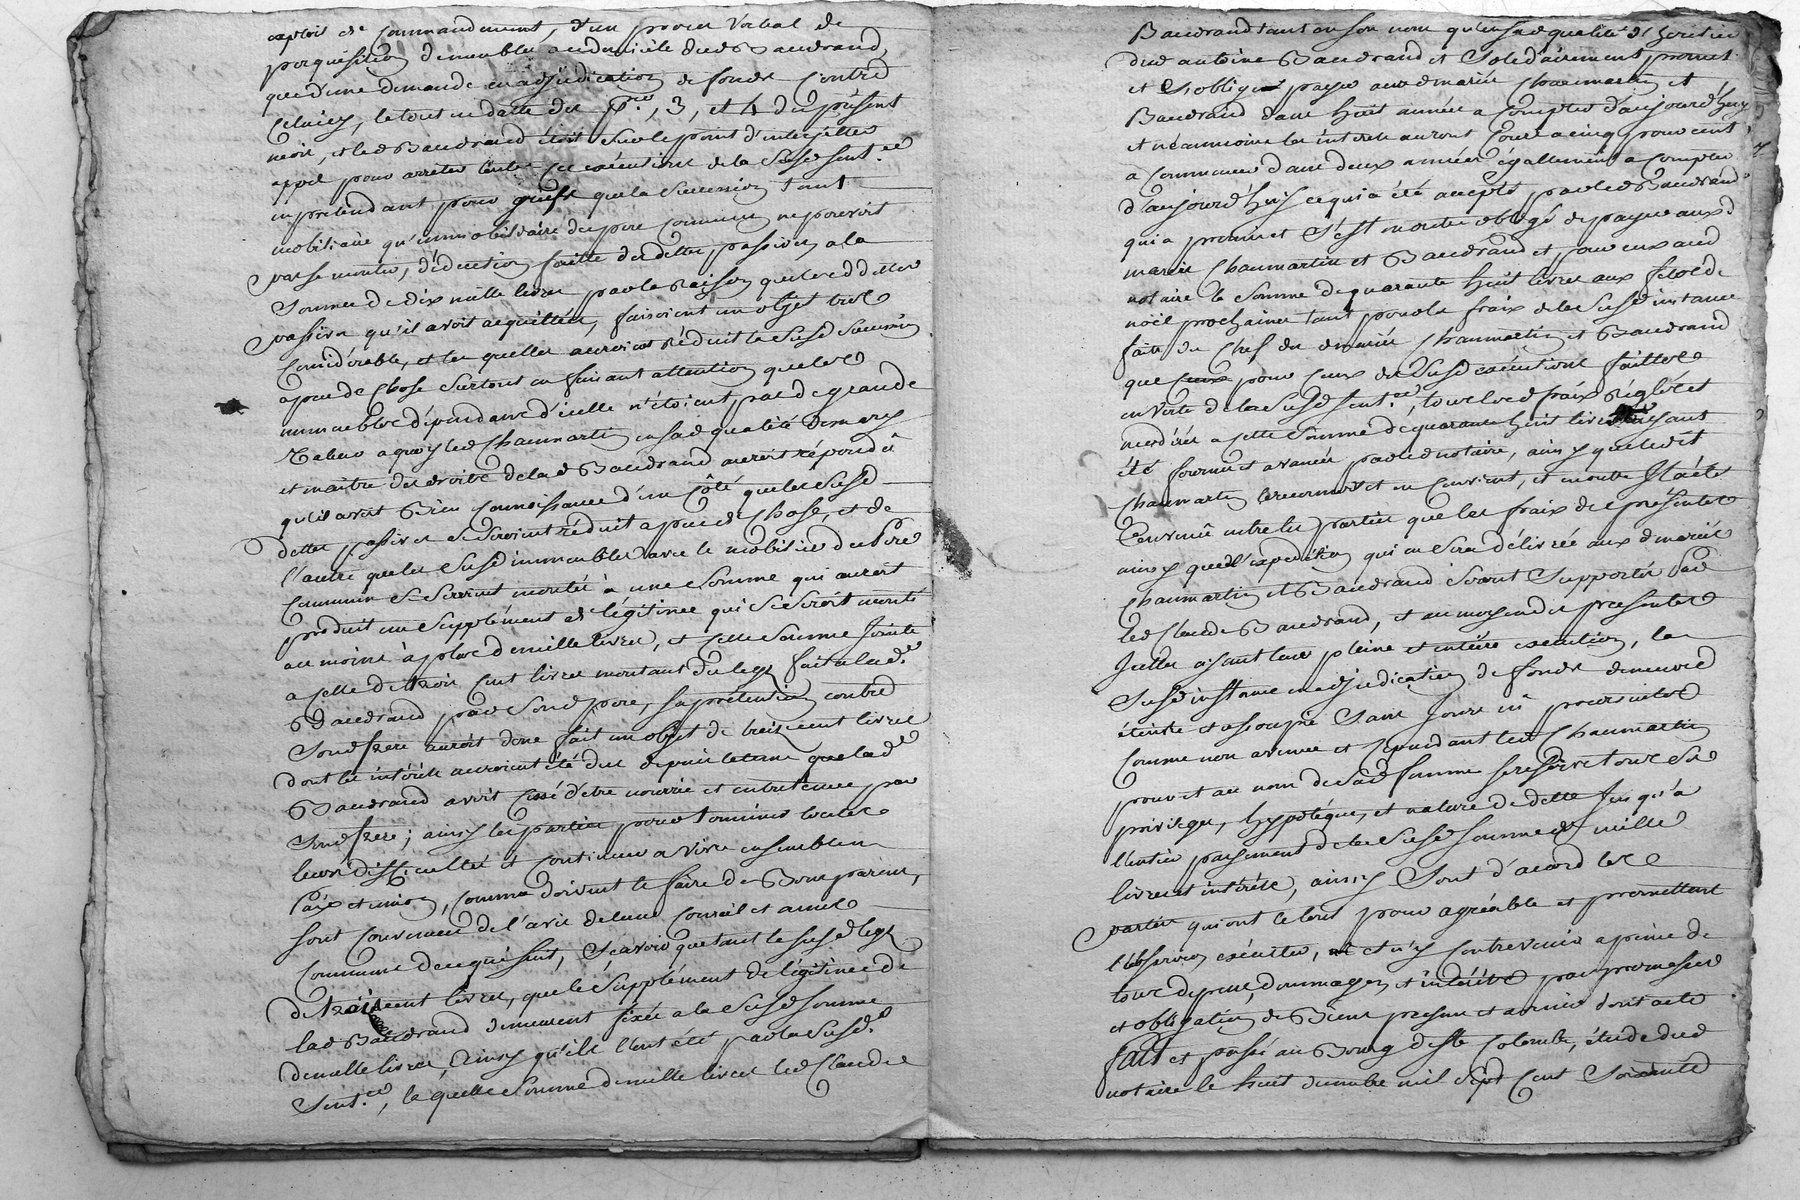 exploit de commandement, d'un procès verbal de
perquisition de meubles au domicile dud Baudrand,
que d'une demande en adjudication de fonds contre
celuicy, le tout en datte des pers, 3, et 4 du présent
mois, et led Baudrand étoit sur le point d'interjetter
appel pour arreter toutes ces exécutions de la susd sent.ce
en prétendant pour griefs que la succession tant
mobiliaire qu'immobiliaire du père commun ne pouvoit
pas se monter, déduction faitte des dettes passives, a la
somme de dix mille livres par la raison que lesd dettes
passives qu'il avoit acquittées, faisoient un objet très
considérable, et les quelles auroient réduit la susd succession
a peu de chose surtout en faisant attention que les
immeubles dépendants d'icelle n'étoient pas de grande
valeur a quoy led Chaumartin en sad qualité de mary
et maitre des droits de lad Baudrand auroit répondu
qu'il avoit bien connoissance d'un côté que les susd
dettes passives se seroient réduit a peu de chose, et de
l'autre que les susd immeubles avec le mobilier du père
commun se seroient montés à une somme qui auroit
produit un supplément de légitime qui se seroit monté
au moins à plus de mille livres, et cette somme jointe
a celle de trois cent livres montant du legs fait a lad.e
Baudrand par sond père, sa prétention contre
sond frere auroit donc fait un objet de treize cent livres
dont les intérêts auroient été dus depuis le tems que lad.e
Baudrand avoit cessé d'etre nourrie et entretenue par
sond frere; ainsy les parties pour terminer toutes
leurs difficultés et continuer a vivre ensemble en
paix et union, comme doivent le faire de bons parens,
sont convenus de l'avis de leurs conseils et amis
communs de ce qui suit, sçavoir que tant le susd legs
de trois cent livres, que le supplément de légitime de
lad Baudrand demeurent fixés a la susd somme
de mille livres, ainsy qu'ils l'ont été par la susd.e
sent.ce, la quelle somme de mille livres led Claude
Baudrand tant en son nom qu'en sad qualité d'héritier
dud antoine Baudrand et solidairement promet
et s'oblige payer auxd mariés Chaumartin et
Baudrand dans huit années a compter d'aujourd'huy
et néanmoins les intérêts auront cours a cinq pour cent
a commencer dans deux années également a compter
d'aujourd'huy ce qui a été accepté par led Baudrand
qui a promis et s'est en outre obligé de payer auxd
mariés Chaumartin et Baudrand et pour eux aud
notaire la somme de quarante huit livres aux fetes de
noël prochaines tant pour les fraix de la susd instance
faits du chef desd mariés Chaumartin et Baudrand
que pour ceux des susd exécutions faittes
en vertu de la susd sent.ce, tous lesd fraix réglés et
modérés a cette somme de quarante huit livres ayant
été fournis et avancés par led notaire, ainsy que led
Chaumartin le reconnoit et en convient, et en outre il a été
convenu entre les parties que les fraix des présentes
ainsy que l'expédition qui en sera délivrée auxd mariés
Chaumartin et Baudrand seront supportés par
led Claude Baudrand, et au moyen des présentes
icelles ayant leur pleine et entière exécution, la
susd instance en adjudication de fonds demeure
éteinte et assoupie sans y être poursuivie
comme non avenue et cependant led Chaumartin
pour et au nom de sad femme se réserve tous ses
privileges, hypotéques, et nature de dette jusqu'à
l'entier payement de la susd somme de mille
livres et intérêts, ainsy sont d'acord les
parties qui ont le tout pour agréable et promettent
l'observer, exécuter, et n'y contrevenir a peine de
tous depens, dommages, et intérêts par promesses
et obligation de biens presens et avenir dont acte
fait et passé au Bourg de Ste Colombe, étude dud
notaire le huit decembre mil sept cent soixante